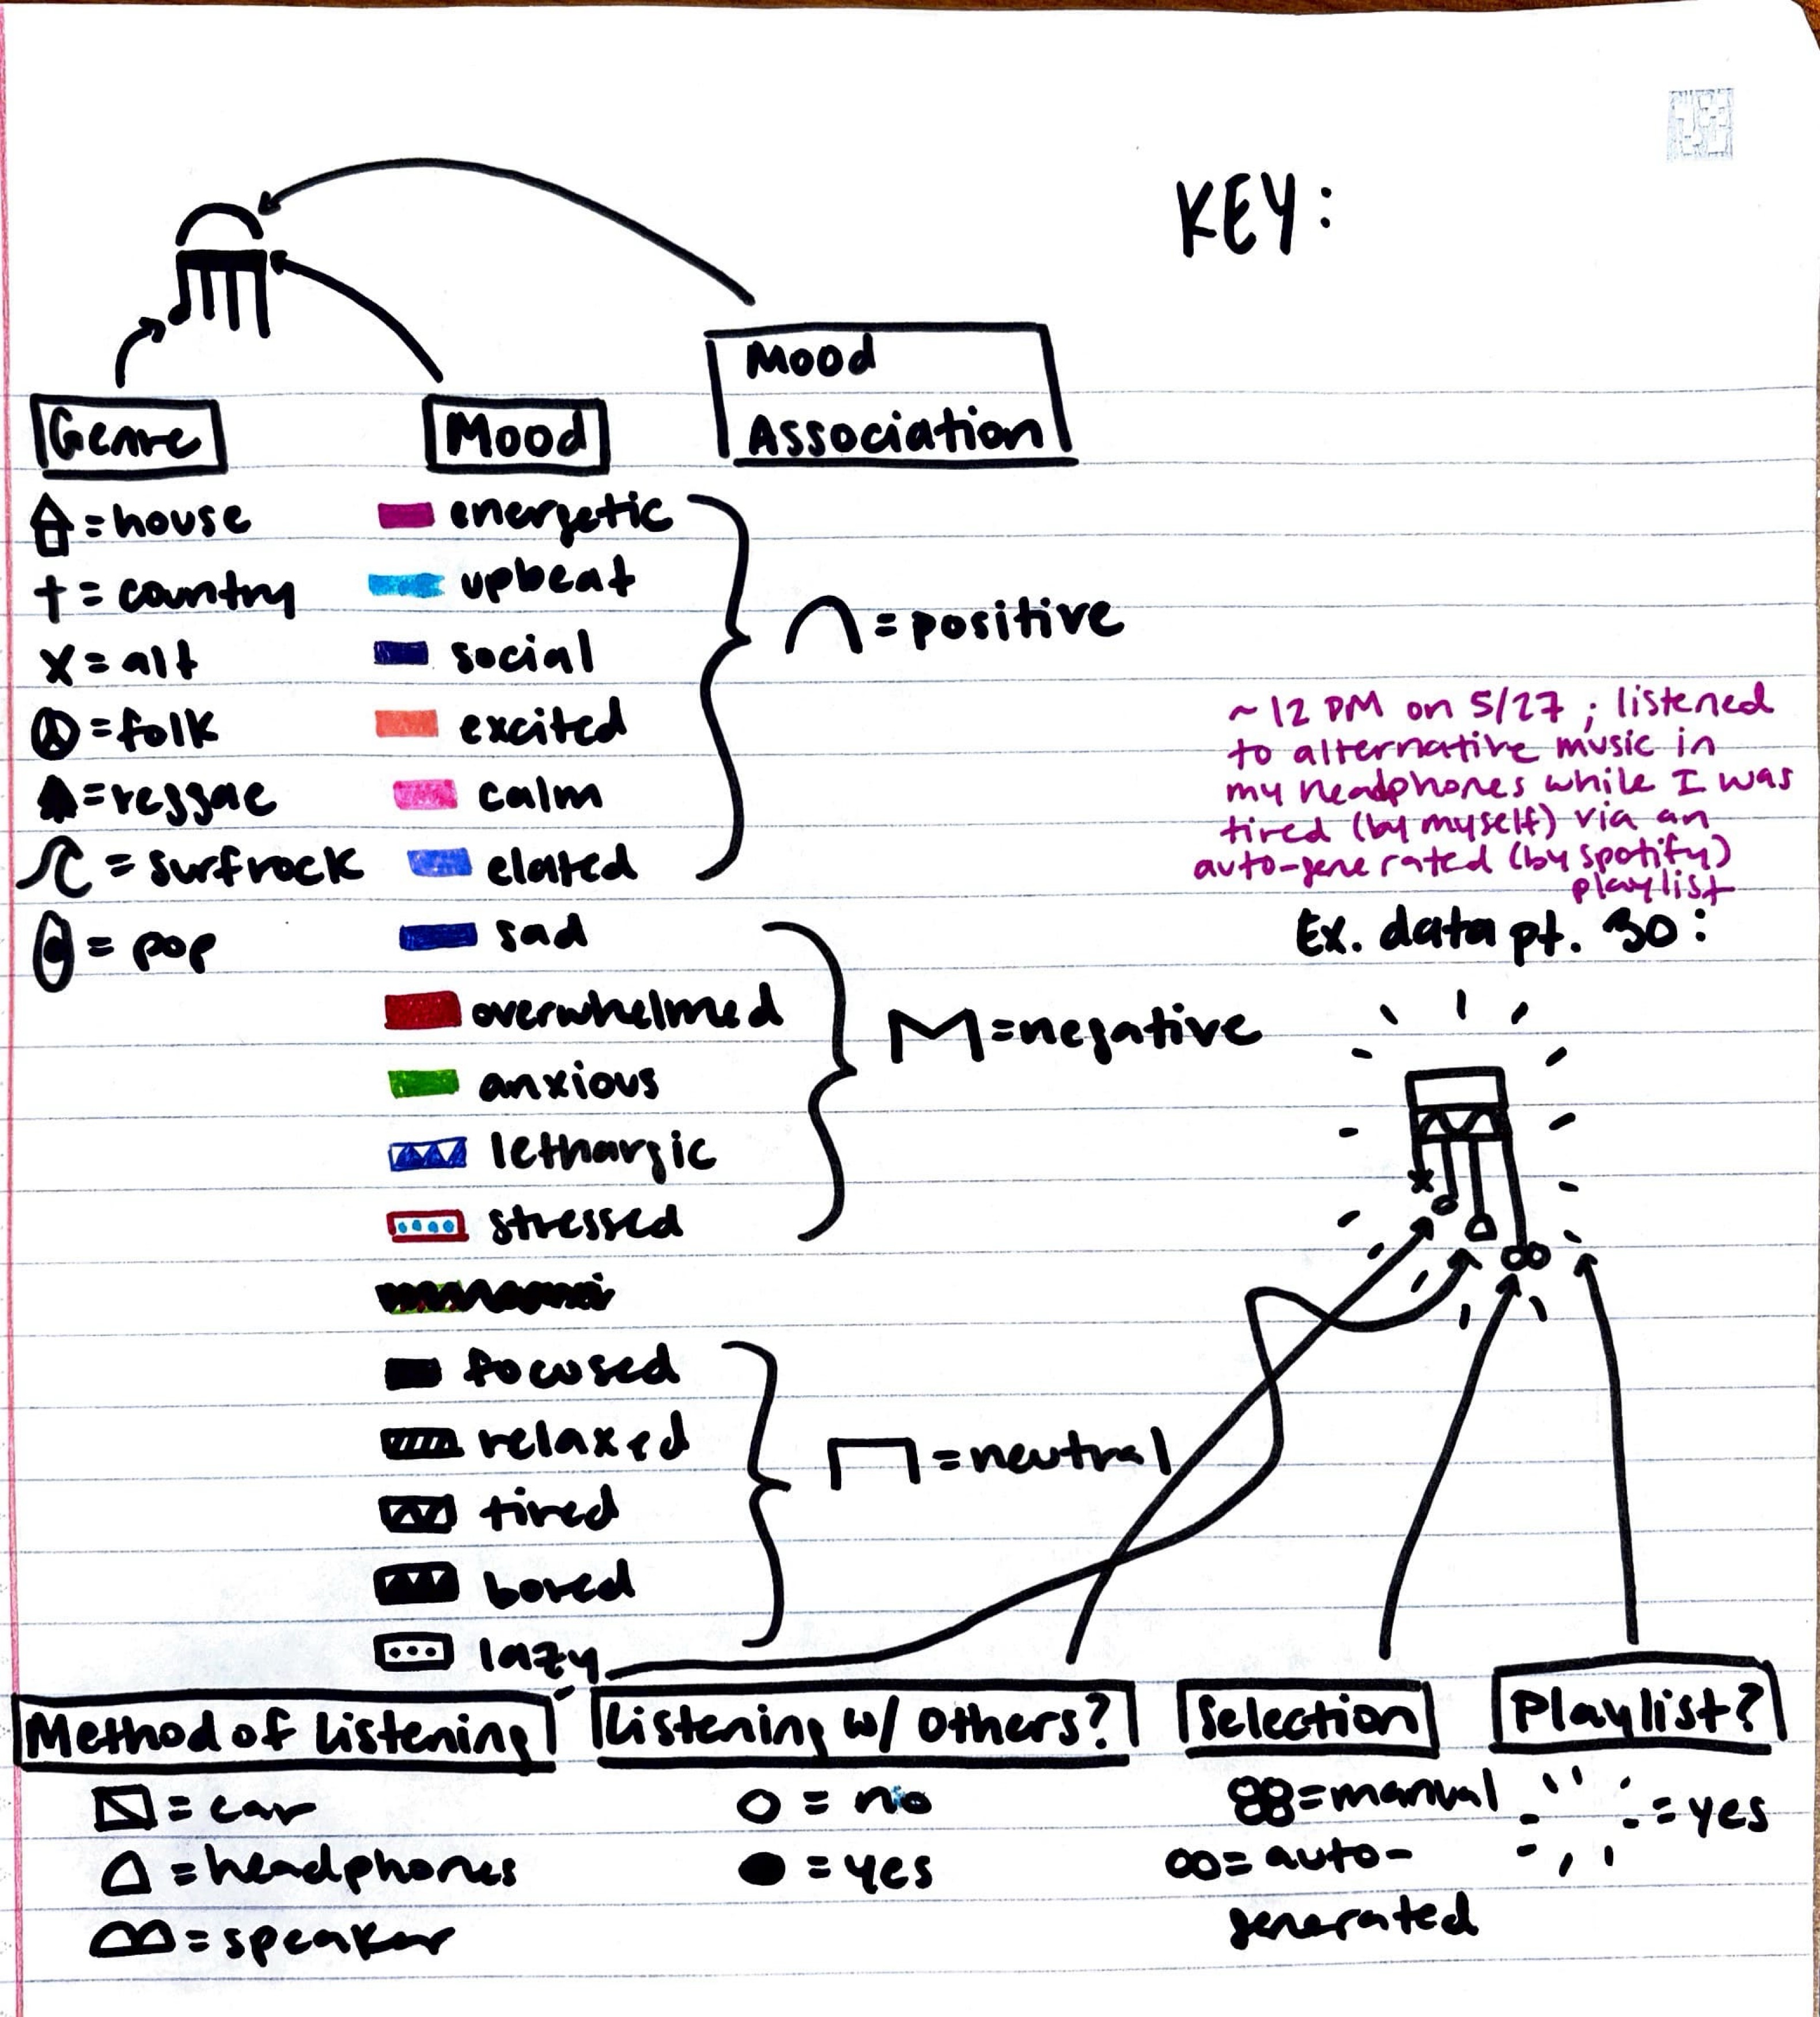 KEY:
Genre
Mood
Mood
Association
= house
= country
= alt
= folk
= reggae
= surfrock
= pop
energetic
upbeat
social
excited
calm
elated
= positive
sad
overwhelmed
anxious
lethargic
stressed
= negative
focused
relaxed
tired
bored
lazy
= neutral
~ 12 PM on 5/27 ; listened
to alternative music in
my headphones while I was
tired (by myself) via an
auto-generated (by spotify)
playlist
Ex. data pt. 30:
Method of Listening
= car
= headphones
= speaker
Listening w/ Others?
= no
= yes
Selection
= manual
= auto-
generated
Playlist?
= yes